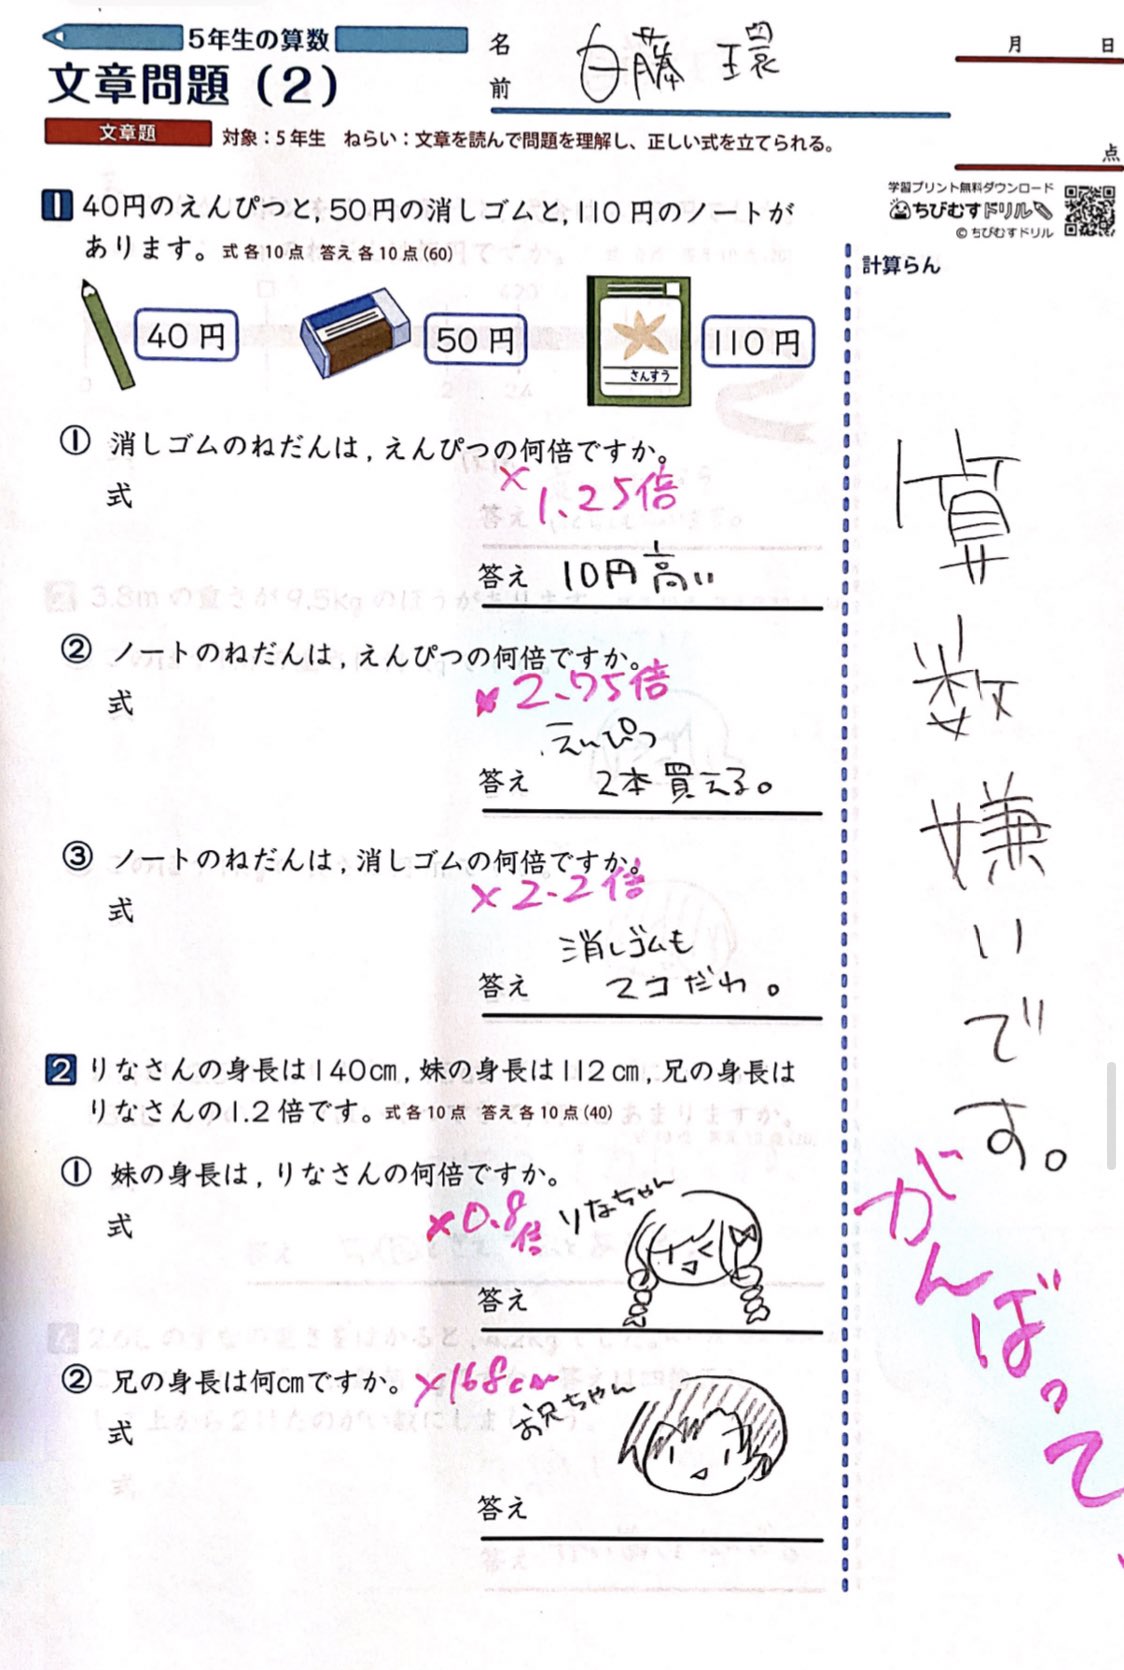 5年生の算数
文章問題（2）
名前
白藤 環
月 日
点
文章題
対象：5年生 ねらい：文章を読んで問題を理解し、正しい式を立てられる。
学習プリント無料ダウンロード
ちびむすドリル
© ちびむすドリル
1 40円のえんぴつと,50円の消しゴムと,110円のノートが
あります。式 各10点 答え 各10点(60)
40円
50円
さんすう
110円
① 消しゴムのねだんは,えんぴつの何倍ですか。
式
× 1.25倍
答え 10円高い
② ノートのねだんは,えんぴつの何倍ですか。
式
× 2.75倍
えんぴつ
答え 2本買える。
③ ノートのねだんは,消しゴムの何倍ですか。
式
× 2.2倍
消しゴムも
答え 2コだわ。
2 りなさんの身長は140cm,妹の身長は112cm,兄の身長は
りなさんの1.2倍です。式 各10点 答え 各10点(40)
① 妹の身長は,りなさんの何倍ですか。
式
×0.8倍
りなちゃん
答え
② 兄の身長は何cmですか。
×168cm
式
お兄ちゃん
答え
計算らん
算数嫌いです。
がんばって